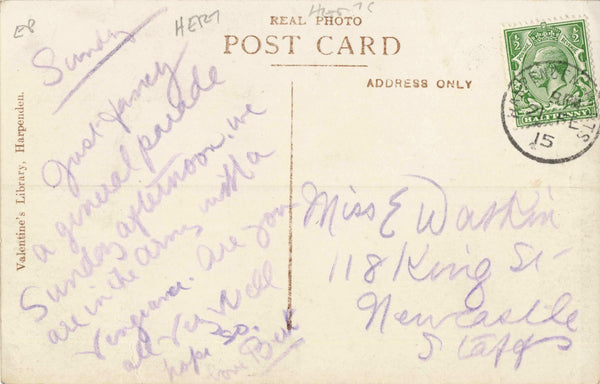 E8
HERT
REAL PHOTO
POST CARD
ADDRESS ONLY
Valentine's Library, Harpenden.
Sunday
Just fancy
a general parade
Sunday afternoon, we
are in the army with a
Vengeance. Are you
all very well
hope so.
love Bert
HALFPENNY
HARPENDEN
15
Miss E Watkin
118 King St
Newcastle
Staffs